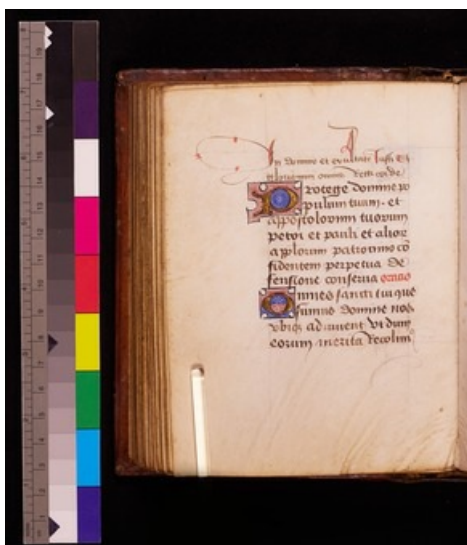 In domino et exultate Justi Et
gloriamini omnes Recti corde
Protege domine po
pulum tuum et
appostolorum tuorum
petri et pauli et alior
applorum patrocinio cō
fidentem perpetua de
fensione conserua oratio
Omnes sancti tui que
sumus domine nos
vbiq adiuuent vt dum
eorum merita recolim